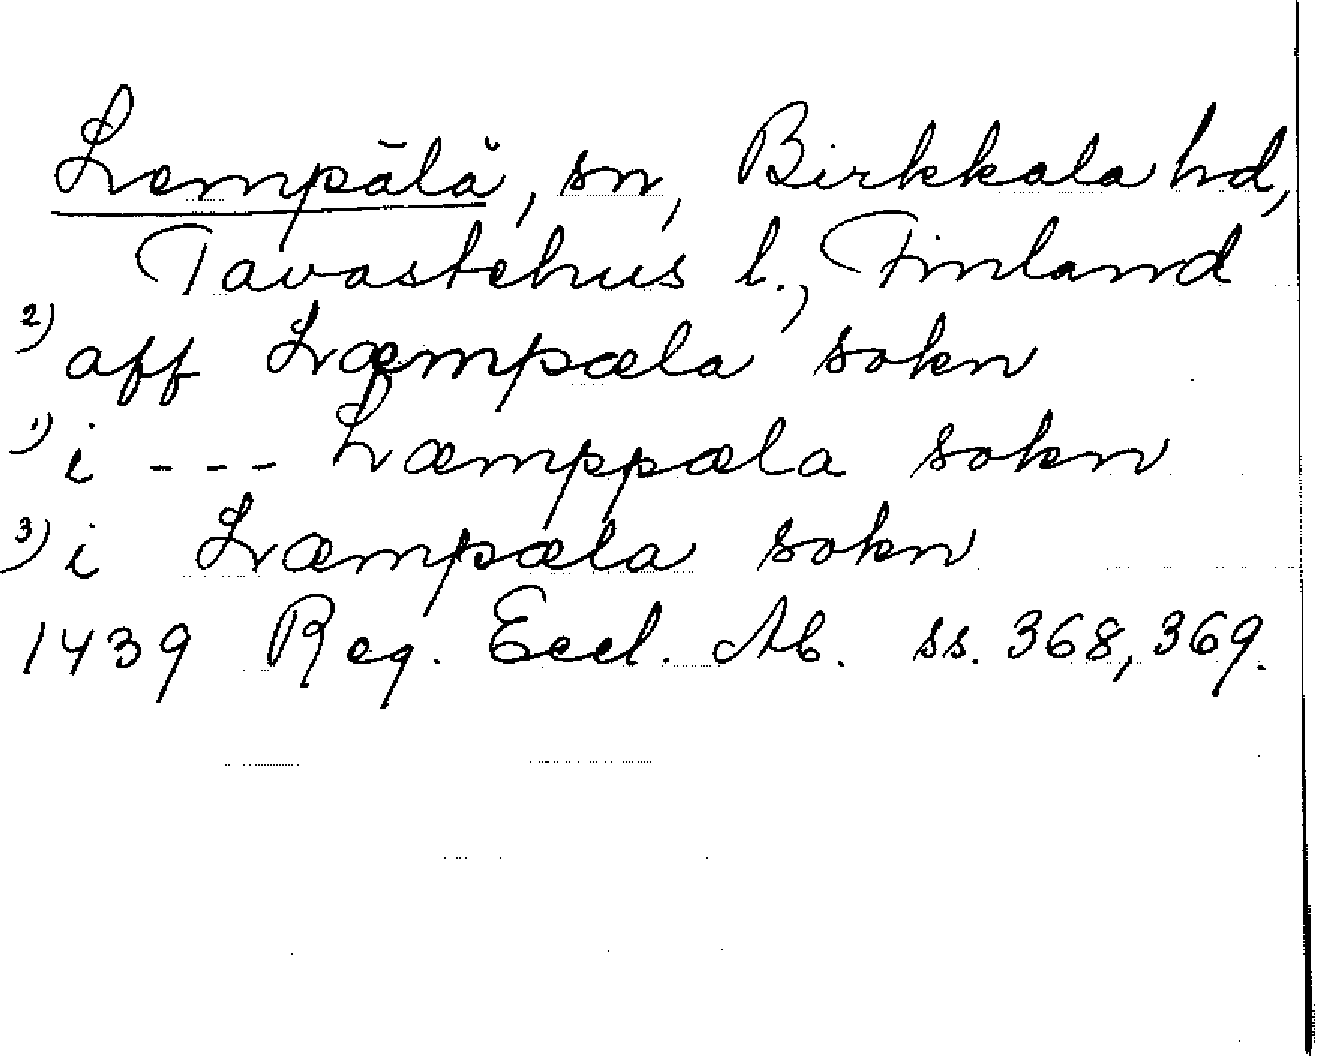 Lempälä, sn, Birkkala hd,
Tavastehus l., Finland
2) aff Læmpæla sokn
1) i --- Læmppæla sokn
3) i Læmpæla sokn
1439 Reg. Eccl. Ab. ss. 368, 369.